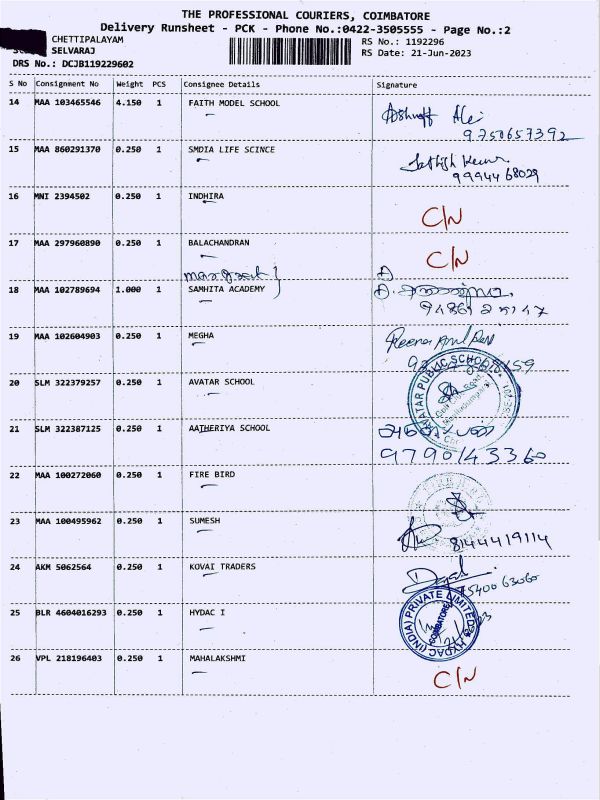 THE PROFESSIONAL COURIERS, COIMBATORE
Delivery Runsheet - PCK - Phone No.:0422-3505555 - Page No.:2
CHETTIPALAYAM
SELVARAJ
DRS No.: DCJB119229602
RS No.: 1192296
RS Date: 21-Jun-2023
S No Consignment No Weight PCS Consignee Details Signature
14 MAA 103465546 4.150 1 FAITH MODEL SCHOOL
9750657392
15 MAA 860291370 0.250 1 SMDIA LIFE SCINCE
Sathish Kumar
9994468029
16 MNI 2394502 0.250 1 INDHIRA C/N
17 MAA 297960890 0.250 1 BALACHANDRAN C/N
18 MAA 102789694 1.000 1 SAMHITA ACADEMY
19 MAA 102604903 0.250 1 MEGHA
20 SLM 322379257 0.250 1 AVATAR SCHOOL
AVATAR PUBLIC SCHOOL
21 SLM 322387125 0.250 1 AATHERIYA SCHOOL
9790143360
22 MAA 100272060 0.250 1 FIRE BIRD
23 MAA 100495962 0.250 1 SUMESH
8144419114
24 AKM 5062564 0.250 1 KOVAI TRADERS
25 BLR 4604016293 0.250 1 HYDAC I
HYDAC (INDIA) PRIVATE LIMITED
COIMBATORE
26 VPL 218196403 0.250 1 MAHALAKSHMI C/N